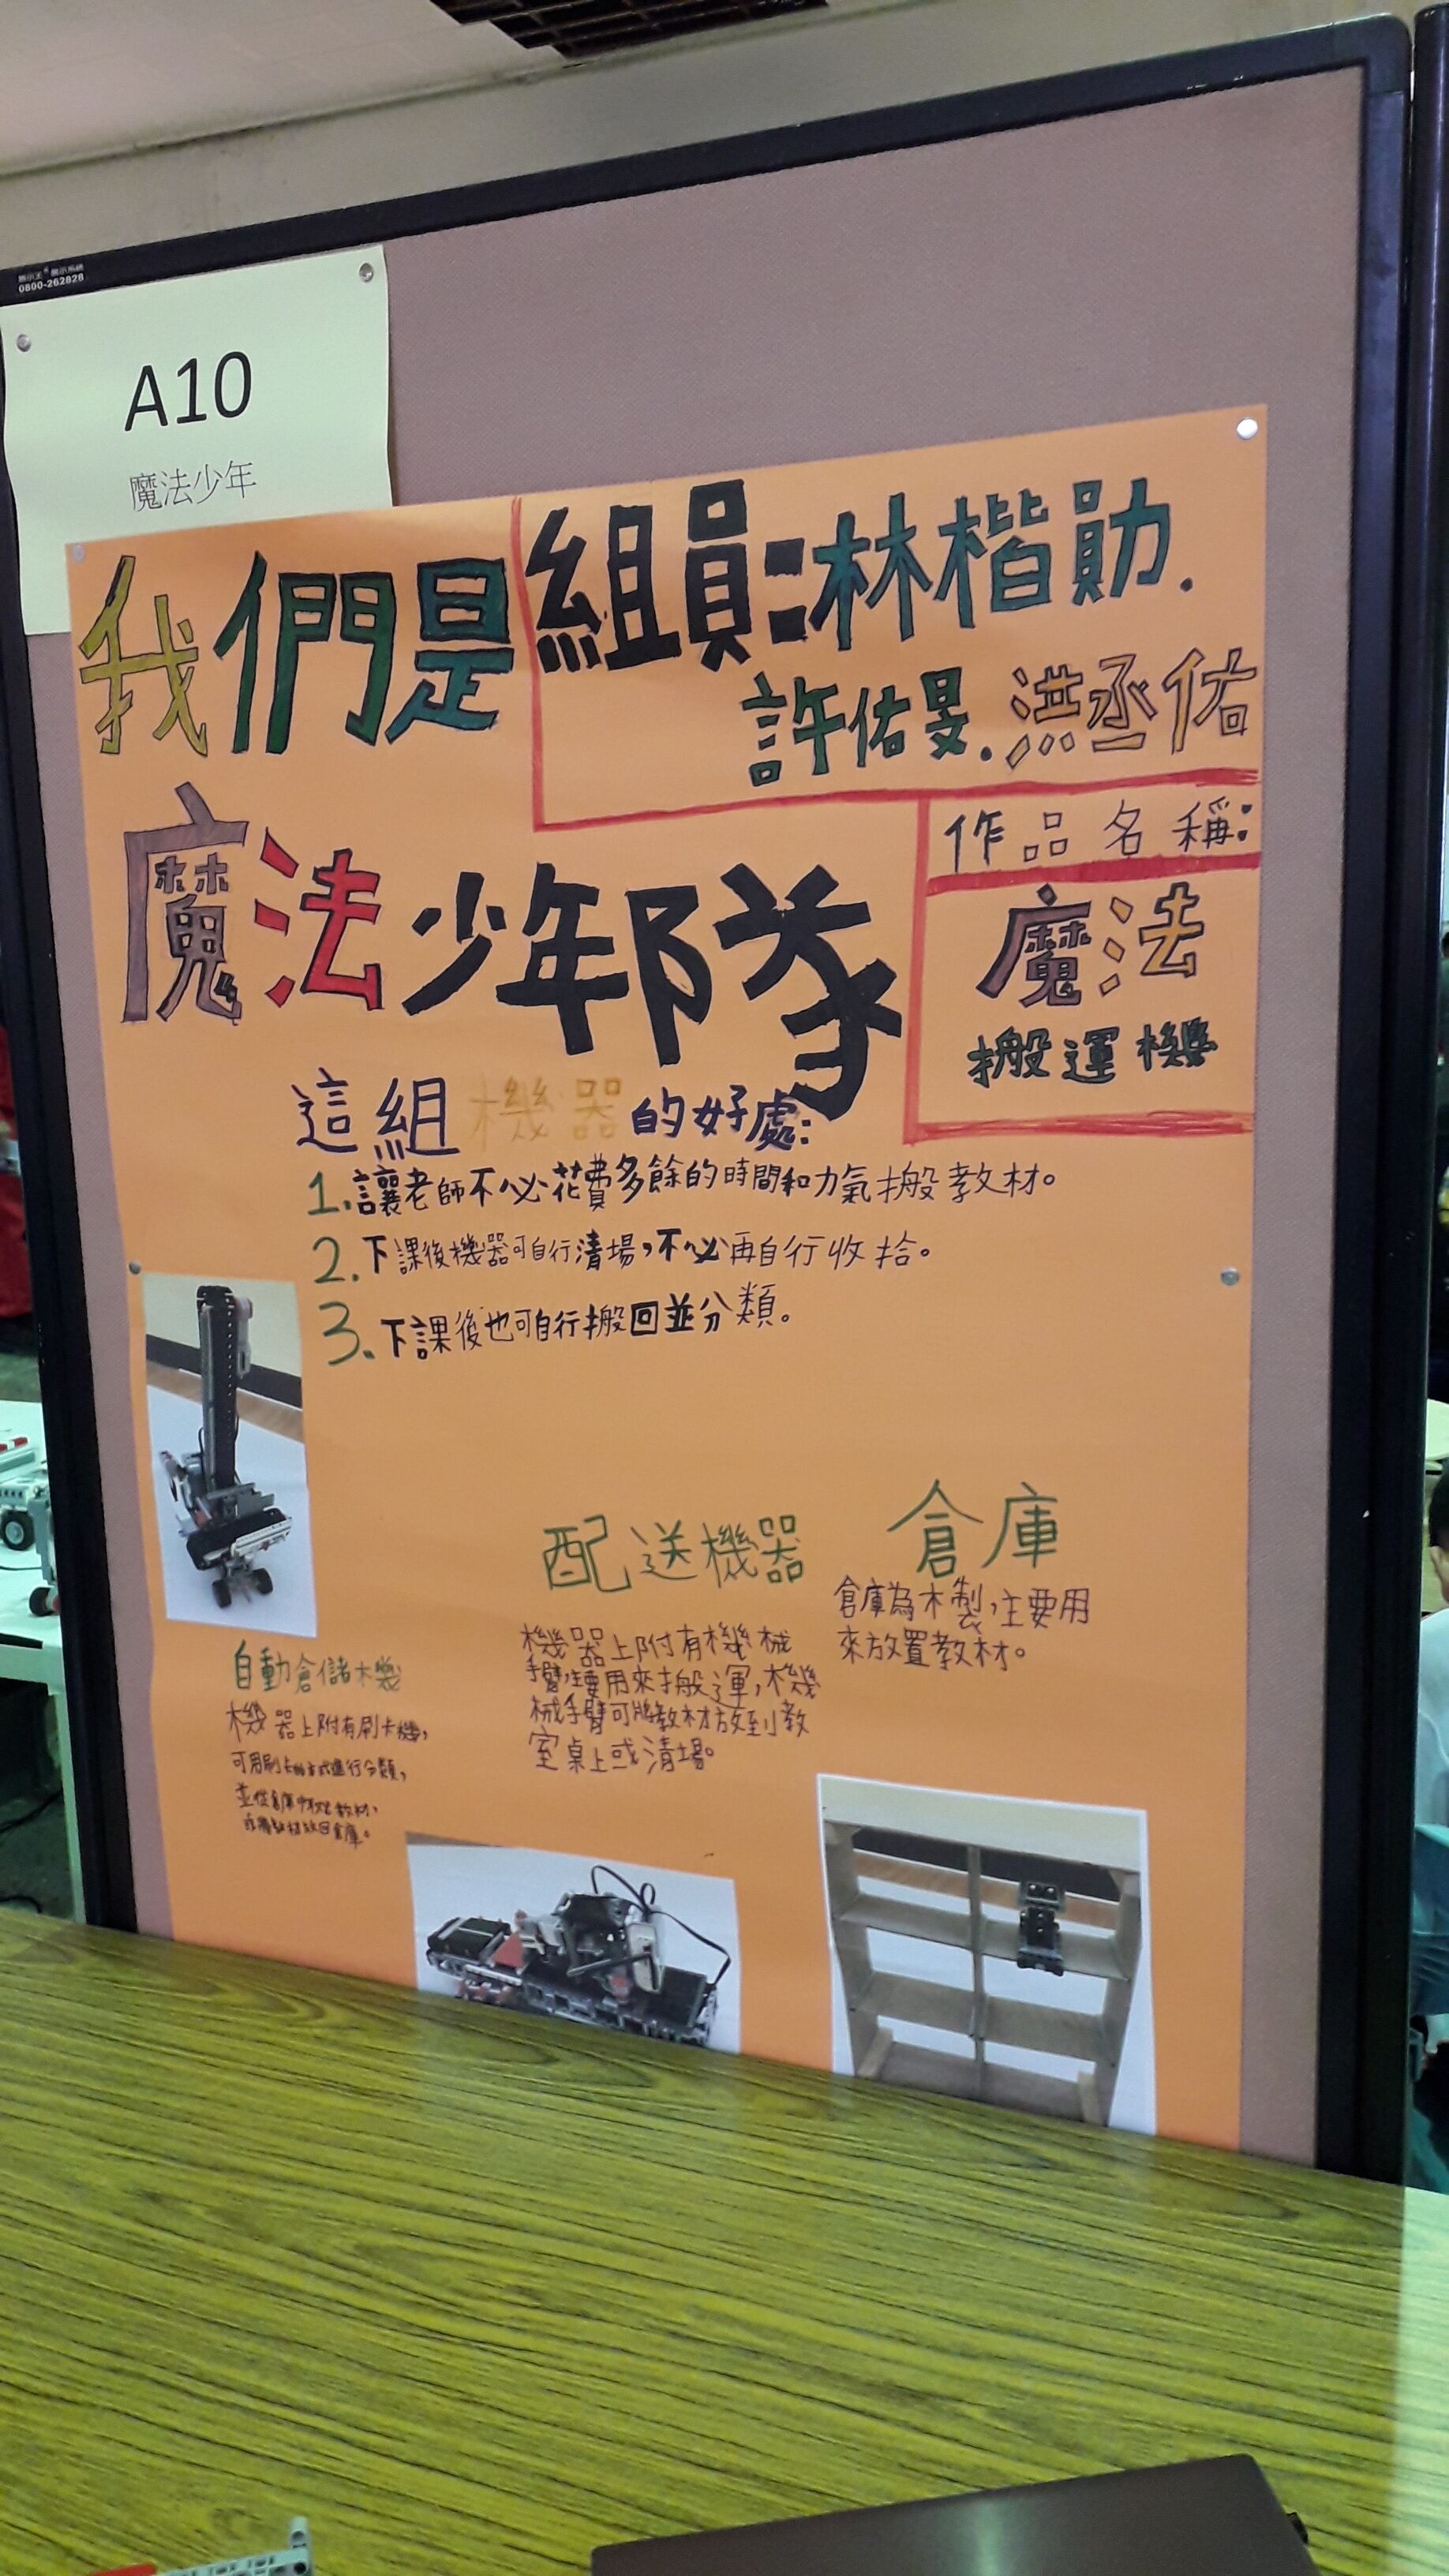 0800-262828
A10
魔法少年
我們是
組員:林楷勛.
許佑旻.洪丞佑
魔法少年隊
作品名稱:
魔法
搬運機
這組機器的好處:
1.讓老師不必花費多餘的時間和力氣搬教材。
2.下課後機器可自行清場,不必再自行收拾。
3.下課後也可自行搬回並分類。
自動倉儲木製
機器上附有刷卡機,
可用刷卡的方式進行分類,
並從倉庫中取出教材,
或將教材放回倉庫。
配送機器
機器上附有機械
手臂,主要用來搬運,機
械手臂可將教材放到教
室桌上或清場。
倉庫
倉庫為木製,主要用
來放置教材。